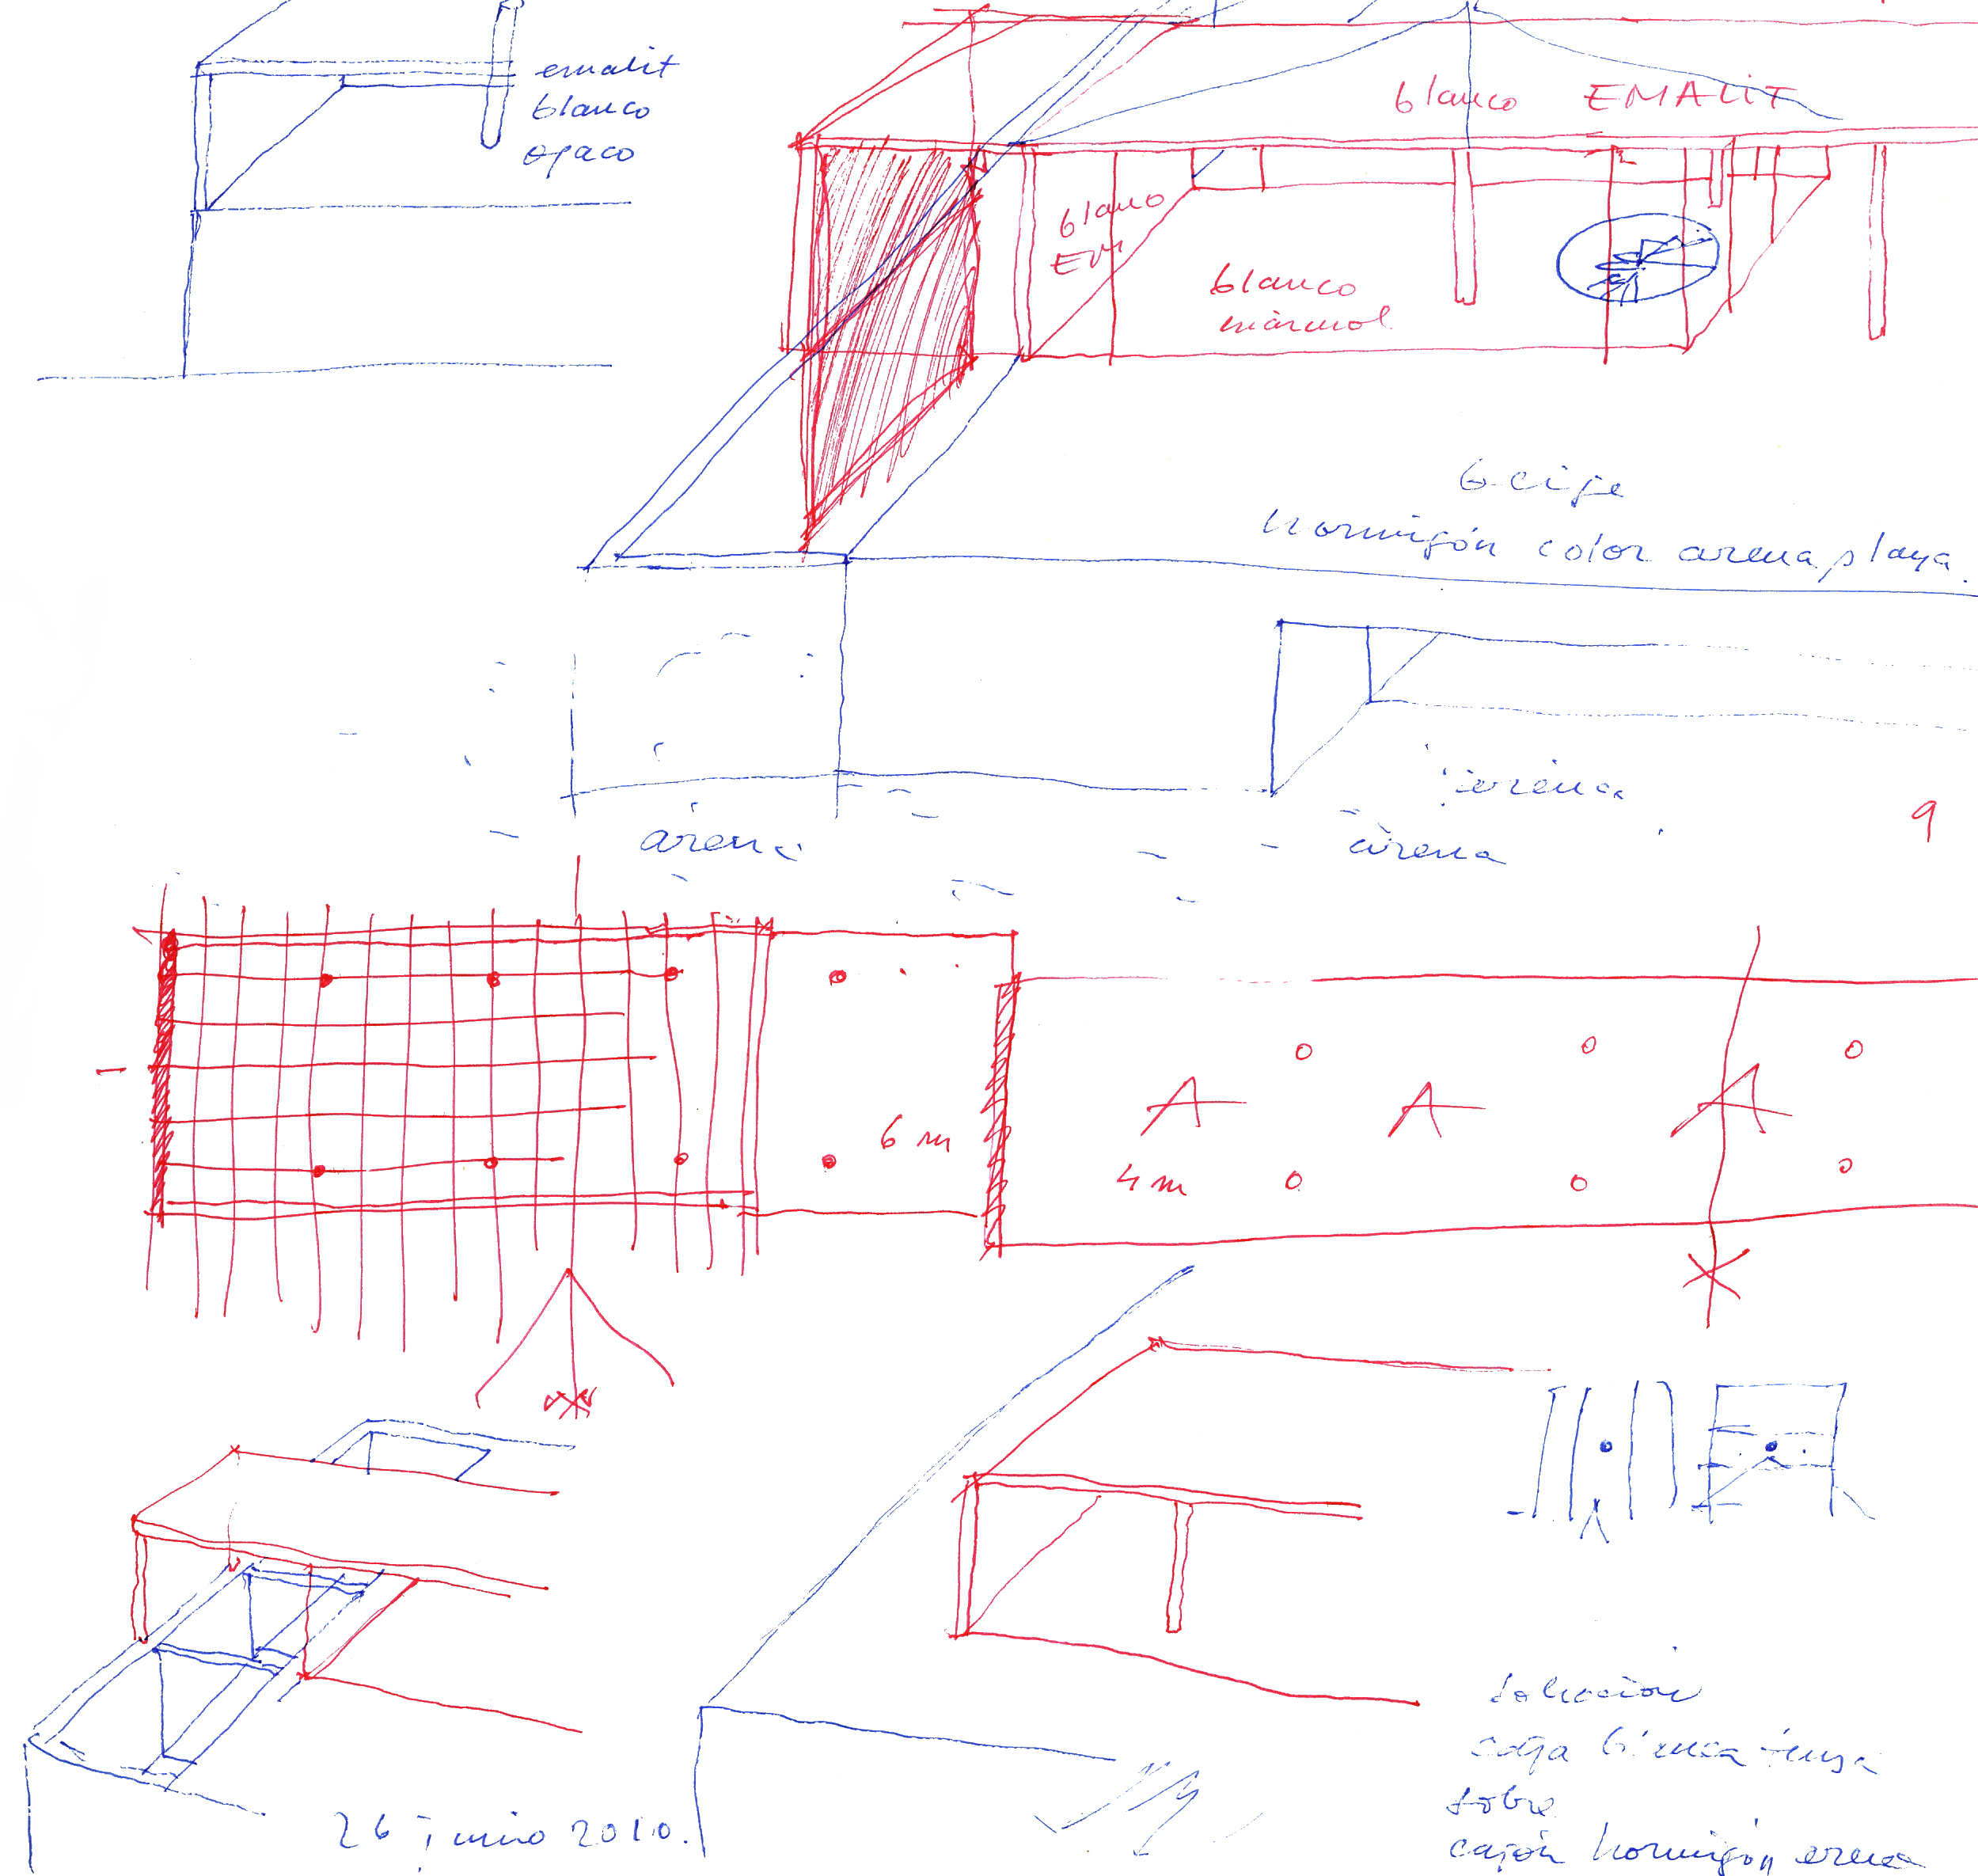 emalit
blanco
opaco
blanco EMALIT
blanco
EM
blanco
mármol
beige
hormigón color arena playa.
arena
arena
arena
9
6 m
A A A
4 m
solución
caja blanca
sobre
cajón hormigón arena
26 junio 2010.